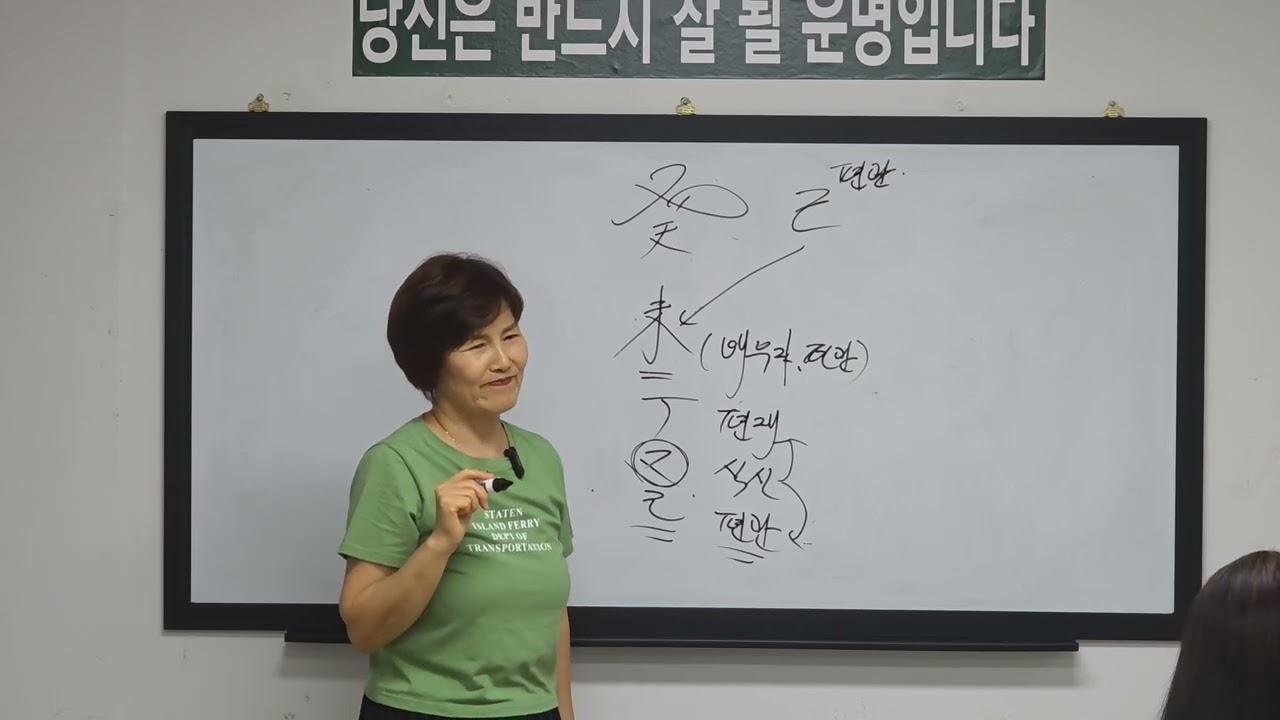 당신은 반드시 잘 될 운명입니다
癸 己 편관
未 (배우자, 편관)
丁 편재
乙 식신
己 편관
STATEN
ISLAND FERRY
DEPT OF
TRANSPORTATION